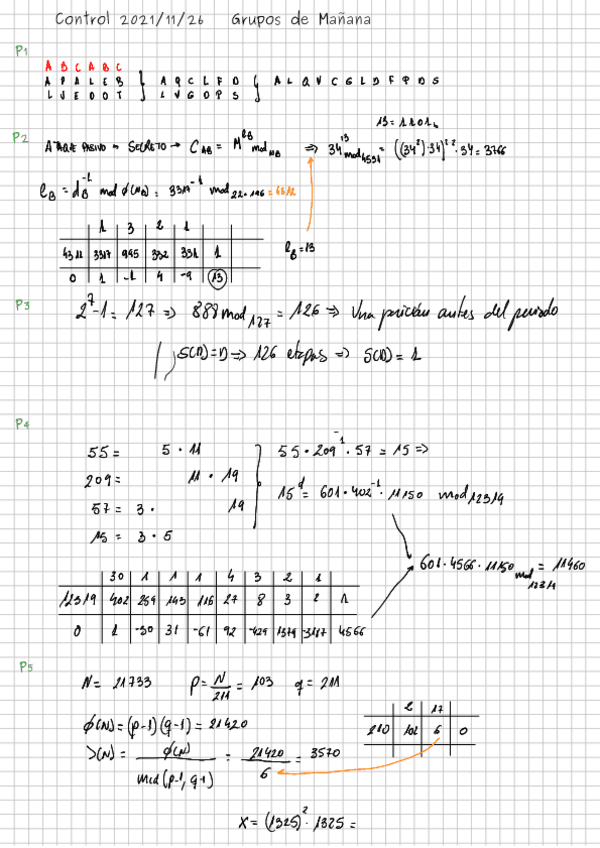 Control 2021/11/26 Grupos de Mañana
P1
A B C A B C
A P A L E B } A Q C L F D } A L Q V C G L D F P D S
L U E O O T L V G O P S
P2
ATAQUE PASIVO → SECRETO → C_AB = M^{e_B} mod_{N_B} ⇒ 34^{13} mod_{4531} = ((34²)·34)^{2·2}·34 = 3766
13 = 1101₂
e_B = d_B^{-1} mod φ(N_B) = 3317^{-1} mod 22·196 = 4312
1 3 2 1
4312 3317 995 332 331 1
0 1 -1 4 -9 13
e_B = 13
P3
2^7-1 = 127 ⇒ 888 mod_{127} = 126 ⇒ Una posición antes del periodo
S(D) = D ⇒ 126 etapas ⇒ S(D) = 1
P4
55 = 5 · 11
209 = 11 · 19
57 = 3 · 19
15 = 3 · 5
55 · 209^{-1} · 57 = 15 ⇒
15^d = 601 · 402^{-1} · 11150 mod 12319
601 · 4566 · 11150 mod 12319 = 11460
30 1 1 1 4 3 2 1
12319 402 259 143 116 27 8 3 2 1
0 1 -30 31 -61 92 -429 1379 -3187 4566
P5
N = 21733 P = N/211 = 103 q = 211
φ(N) = (p-1)(q-1) = 21420
λ(N) = φ(N)/mcd(p-1, q-1) = 21420/6 = 3570
2 17
210 102 6 0
X = (1325)² · 1325 =